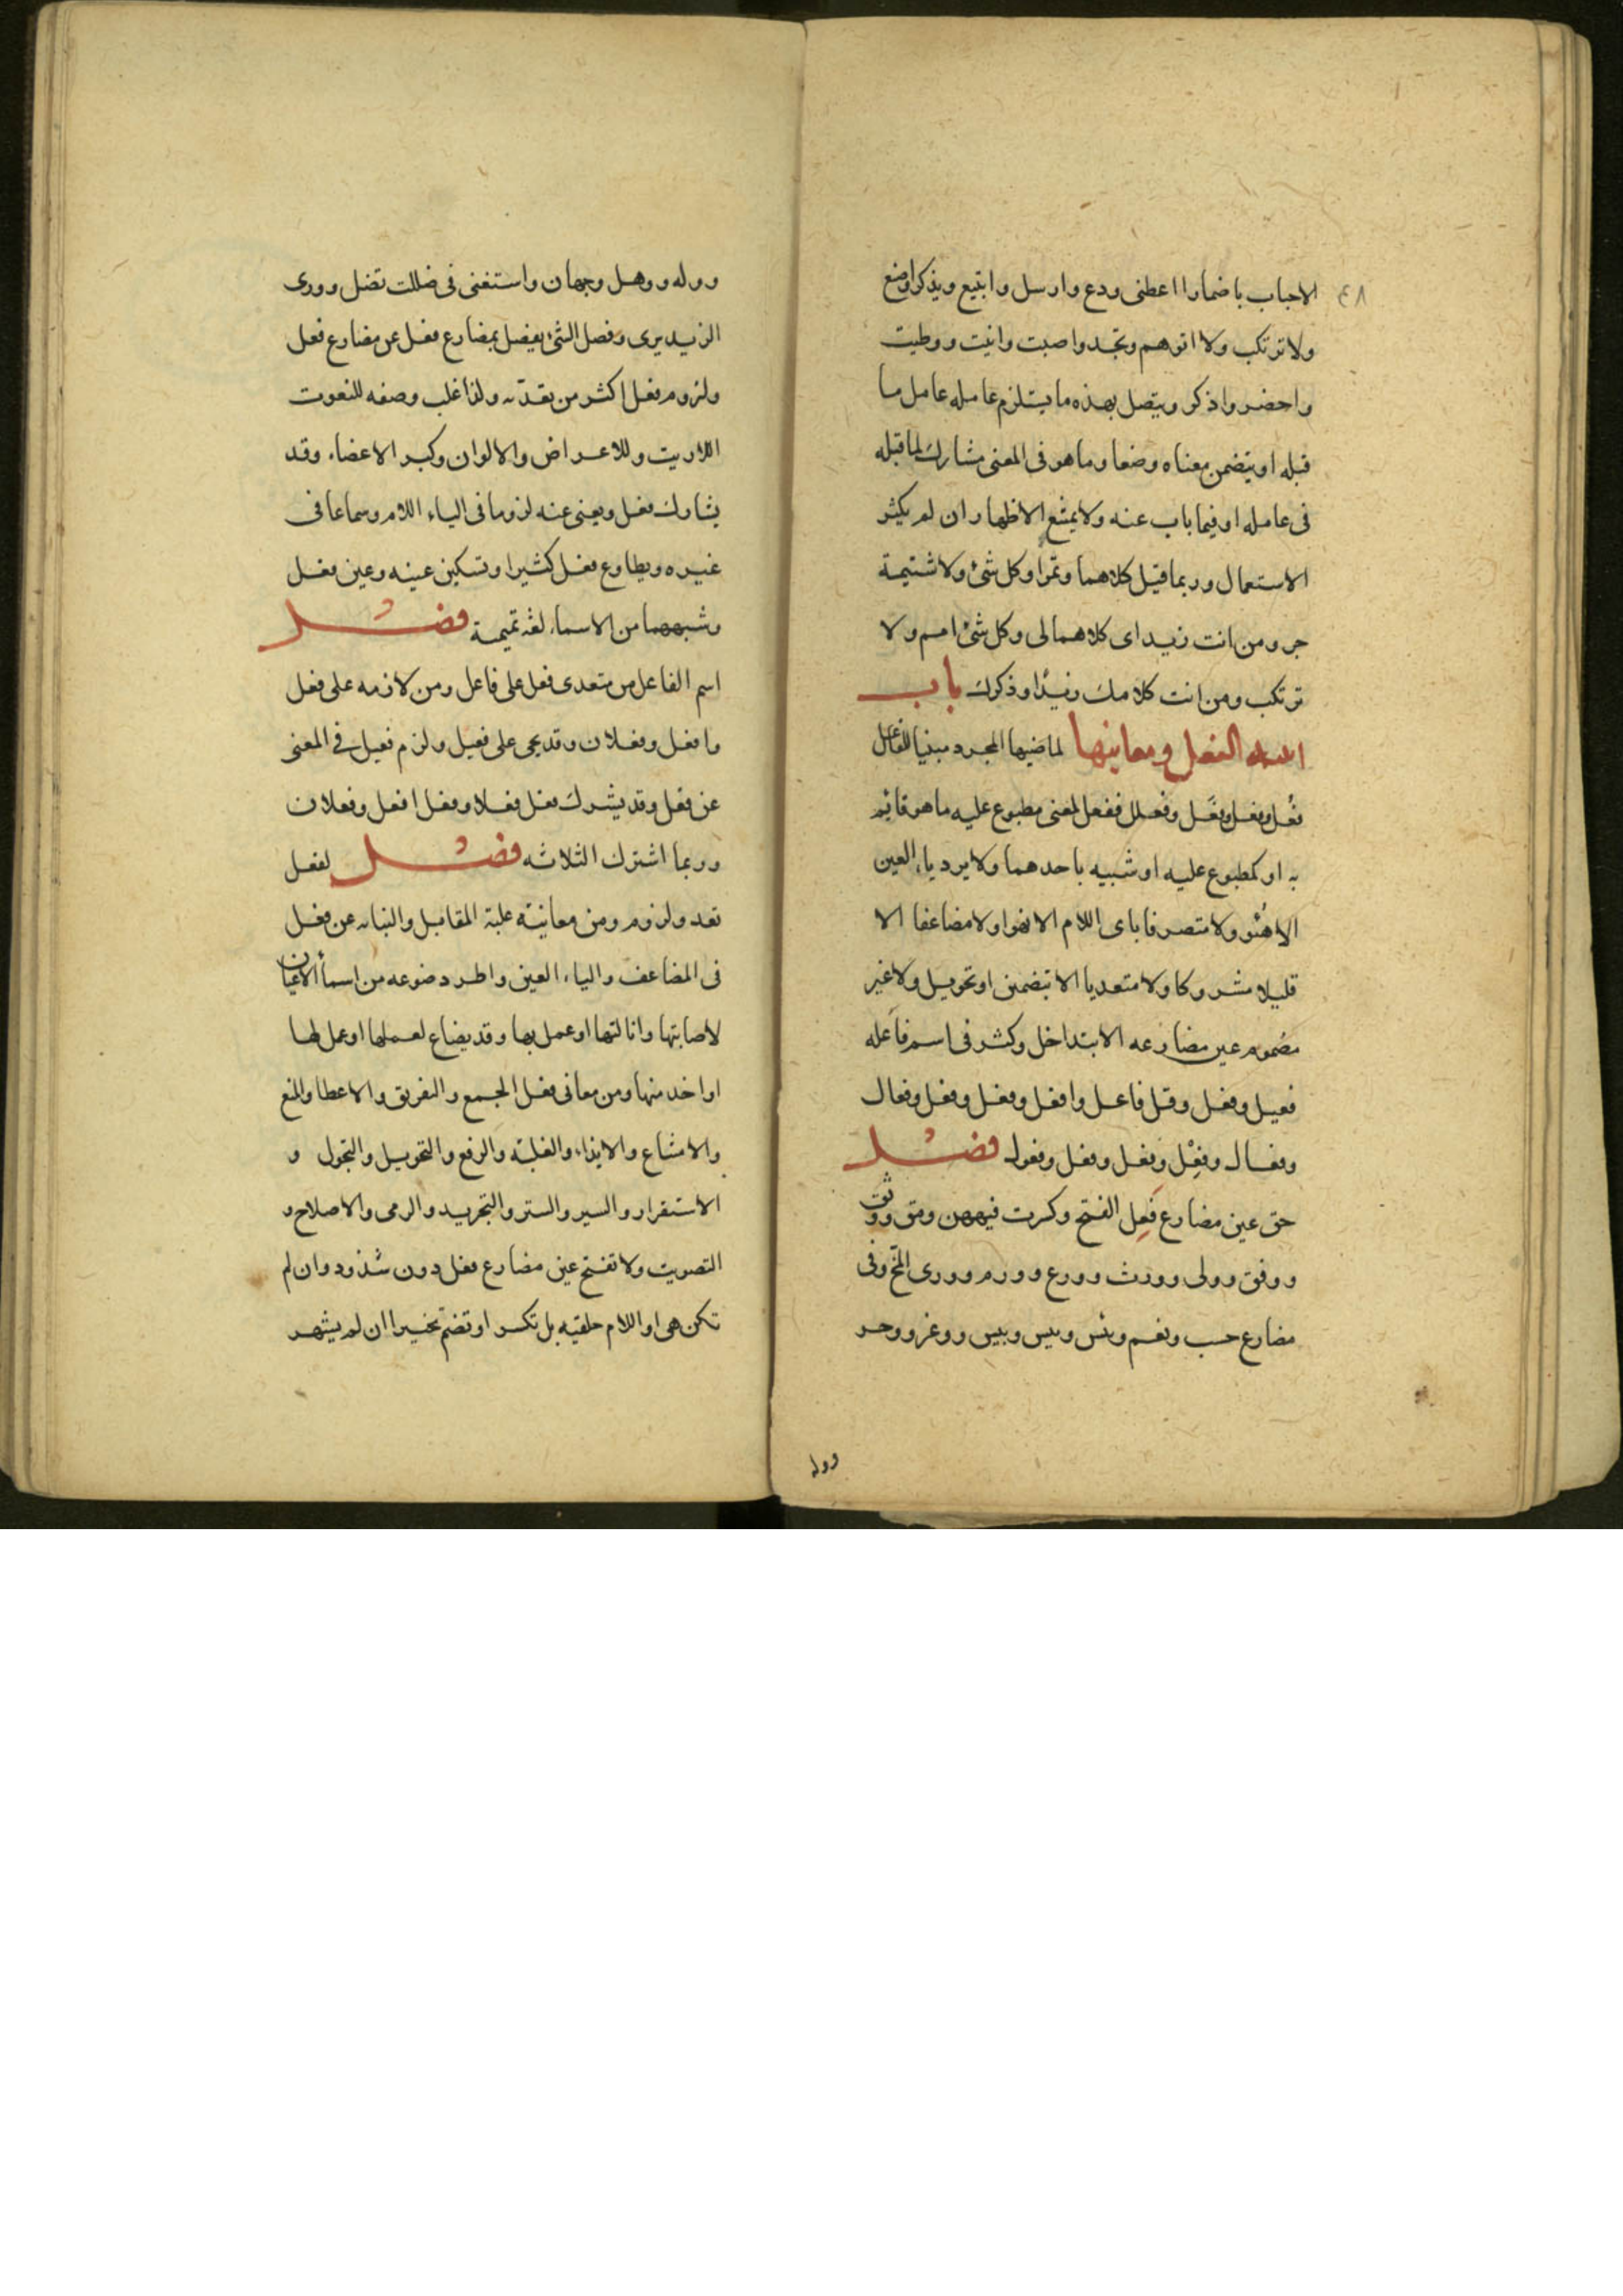 ٤٨
الاحباب باضمار اعطنى ودع وارسل وابتيع ويذكر واضع
ولا ترتكب ولا اتوهم وتجد واصبت واتيت ووطيت
واحضر واذكر ويتصل بهذه ما يستلزم عامله عامل ما
قبله او يتضمن معناه وضعا وما هو فى المعنى مشارك لما قبله
فى عامله او فيما ناب عنه ولا يمتنع الاظهار ان لم يكثر
الاستعمال وربما قيل كلاهما وتمرا وكل شئ ولا شتيمة
حر ومن انت زيد اى كلاهما لى وكل شئ امم ولا
ترتكب ومن انت كلامك زيدا وذكرك باب
ابنية الفعل ومعانيها لماضيها المجرد مبنيا للفاعل
فعُل وفعِل وفعَل وفعلل ففعل لمعنى مطبوع عليه ما هو قايم
به او كمطبوع عليه او شبيه باحدهما ولا يرد ياءى العين
الا هَيُؤ ولا متصرفا ياى اللام الا نهو ولا مضاعفا الا
قليلا مشروكا ولا متعديا الا بتضمين او تحويل ولا غير
مضموم عين مضارعه الا بتداخل وكثر فى اسم فاعله
فعيل وفعل وقل فاعل وافعل وفعل وفعل وفعال
وفعال وفعل وفعل وفعل وفعول فصل
حق عين مضارع فَعِل الفتح وكسرت فيه من ومق ووثق
ووفق وولى وورث وورع وورم وورى المخ وفى
مضارع حسب ونعم وبئس ويئس ويبس ووغر ووحر
ووله
ووله ووهل وجهان واستغنى فى ضللت تضل وورى
الزند يرى وفضل الشئ يفضل بمضارع فعل عن مضارع فعل
ولزوم فعل اكثر من تعديه ولذا غلب وصفه للنعوت
اللازمة وللاعراض والالوان وكبر الاعضاء وقد
يشارك فعل ويغنى عنه لزوما فى الياء اللام وسماعا فى
غيره ويطاوع فعل كثيرا وتسكين عينه وعين فعل
وشبههما من الاسماء لغة تميمية فصل
اسم الفاعل من متعدى فعل على فاعل ومن لازمه على فعل
وافعل وفعلان وقد يجى على فعيل ولزم فعيل فى المغنى
عن فعل وقد يشرك فعل فعلا وفعل افعل وفعلان
وربما اشترك الثلاثه فصل لفعل
تعد ولزوم ومن معانيه غلبة المقابل والنيابه عن فعل
فى المضاعف والياء العين واطرد صوغه من اسماء الاعيان
لاصابتها وانالتها او عمل بها وقد يصاغ لعملها او عمل لها
او اخذ منها ومن معانى فعل الجمع والتفريق والاعطا والمنع
والامتناع والايذاء والغلبة والرفع والتحويل والتحول و
الاستقرار والسير والستر والتجريد والرمى والاصلاح و
التصويت ولا تفتح عين مضارع فعل دون شذوذ وان لم
تكن هى او اللام حلقيه بل تكسر او تضم تخييرا ان لم يشهر